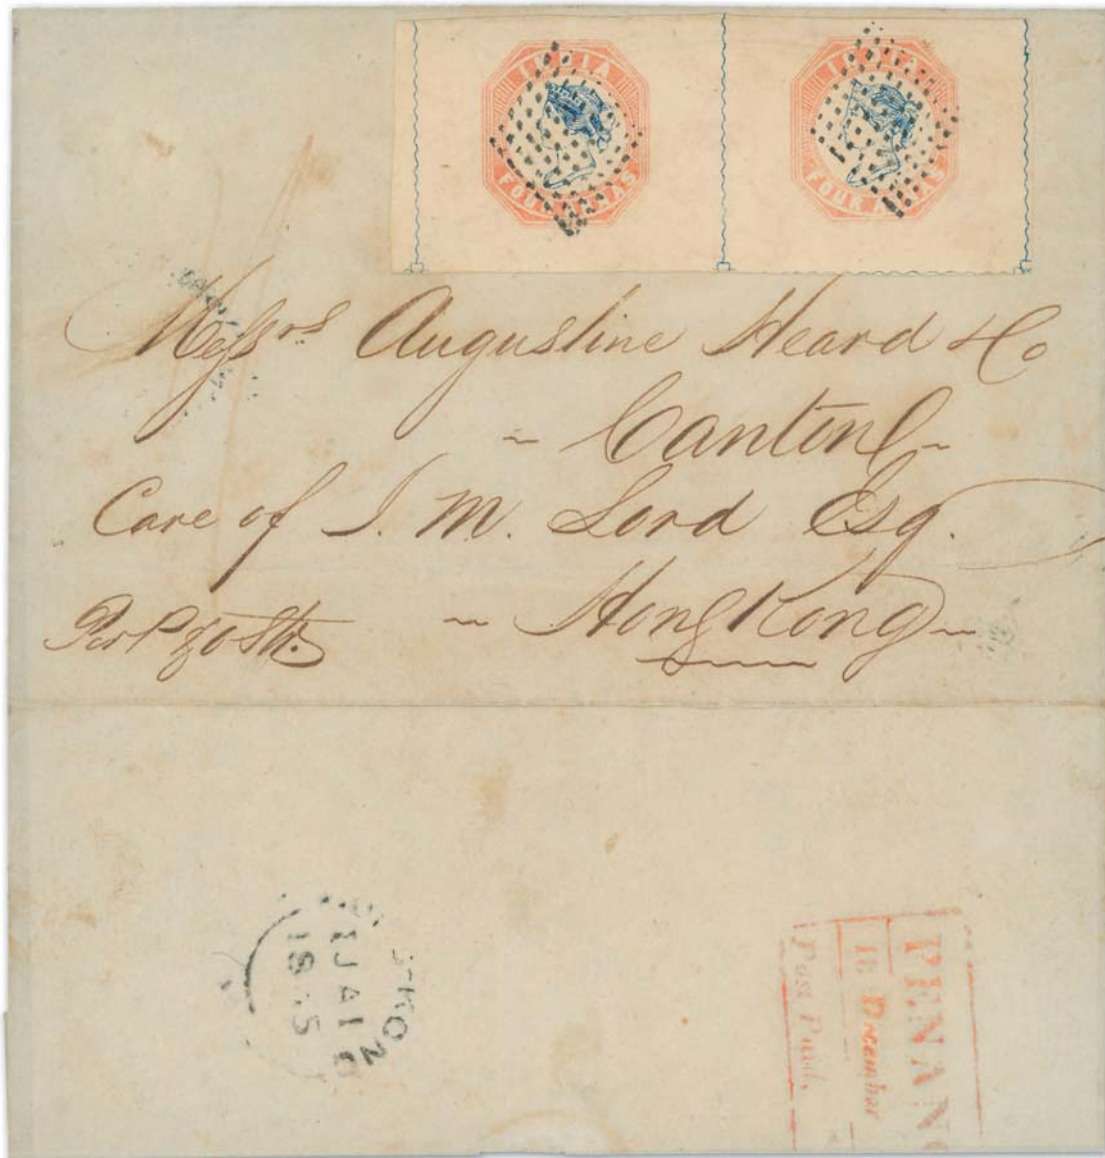 INDIA
FOUR ANNAS
INDIA
FOUR ANNAS
Messrs Augustine Heard & Co
~ Canton ~
Care of J. M. Lord Esq.
~ HongKong ~
Per P & O Str.
PENANG
16 December
Post Paid.